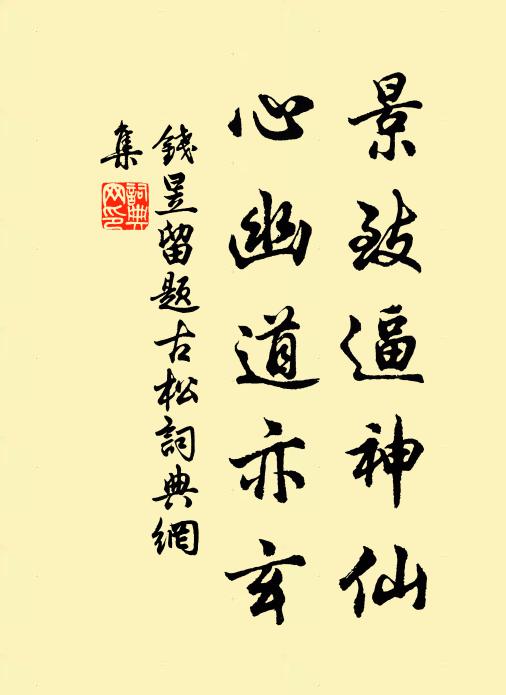 景致逼神仙
心幽道亦玄
錢昱留題古松詞典網
集
詞典网印